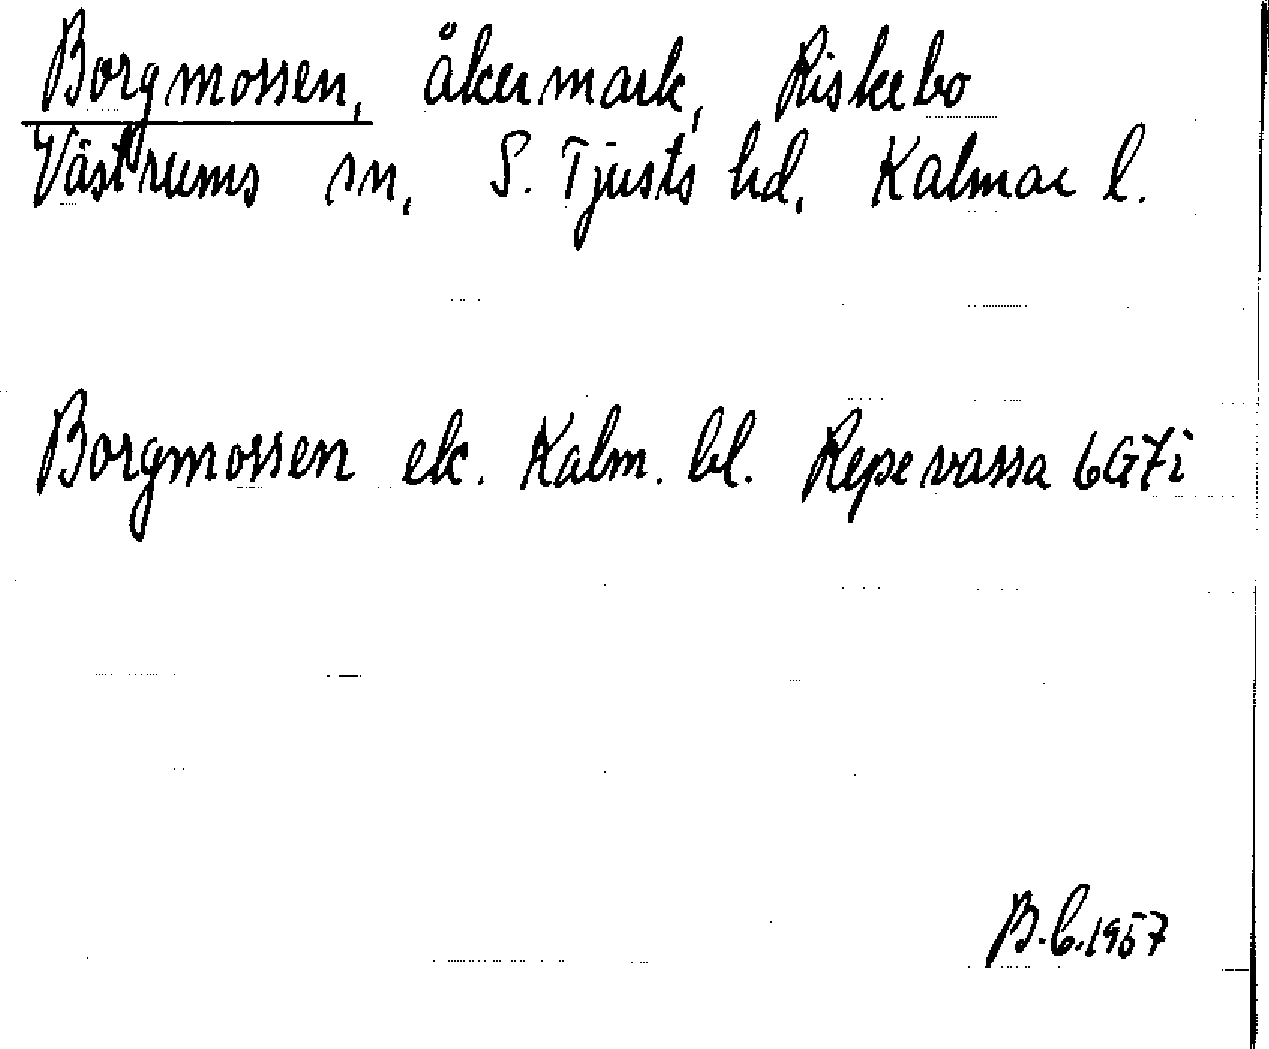 Borgmossen, åkermark, Riskebo
Västrums sn, S. Tjusts hd, Kalmar l.
Borgmossen ek. Kalm. bl. Repevassa 6G7i
B.b.1957